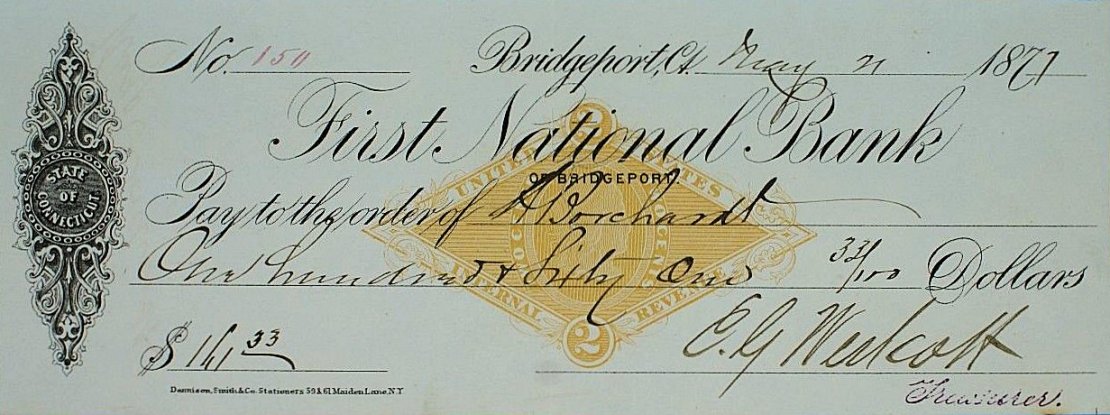 No. 150
Bridgeport, Ct. May 21 1877
First National Bank
OF BRIDGEPORT.
Pay to the order of Borchardt
One hundred & Sixty One 33/100 Dollars
$161 33
E. G. Westcott
Treasurer.
Dennison, Smith & Co. Stationers 59 & 61 Maiden Lane, N.Y
STATE
OF
CONNECTICUT
UNITED STATES
INTERNAL REVENUE
2
2